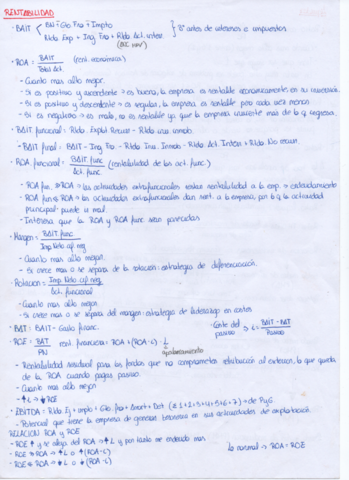 RENTABILIDAD
· BAIT { BN + Gto Fra + Impto } Bº antes de intereses e impuestos
Rtdo Exp + Ing Fra + Rtdo Act. interr.
· ROA = BAIT / Total Act. (rent. económica)
- Cuanto mas alto mejor.
- Si es positivo y ascendente → es buena, la empresa es rentable económicamente en su
- Si es positivo y descendente → es regular, la empresa es rentable pero cada vez menos
- Si es negativo → es malo, no es rentable ya que la empresa invierte mas de lo q ingresa.
· BAIT funcional = Rtdo. Explot Recurr - Rtdo inmob.
· BAIT funal = BAIT - Ing Fro - Rtdo Inm. - Rtdo Act. Interr + Rtdo. No recurr.
· ROA funcional = BAIT func / Act. func (rentabilidad de las act. func)
- ROA fun. > ROA → las actividades extrafuncionales restan rentabilidad a la emp. →
- ROA fun < ROA → las actividades extrafuncionales dan rent. a la empresa, por lo q la actividad
principal puede ir mal.
- Interesa que la ROA y ROA func sean parecidas
· Margen = BAIT func / Imp. Neto cif neg
- Cuanto mas alto mejor.
- Si crece mas o se separa de la rotación: estrategia de diferenciación.
· Rotación = Imp. Neto cif neg / Act. funcional
- Cuanto mas alto mejor.
- Si crece mas o se separa del margen: estrategia de liderazgo en costes
· BAT = BAIT - Gasto financ. · Coste del pasivo → i = BAIT - BAT / Pasivo
· ROE = BAT / PN rent. financiera = ROA + (ROA - i) · L
apalancamiento
- Rentabilidad residual para los fondos que no comprometen retribución al exterior, lo que queda
de la ROA cuando pagas pasivo.
- Cuanto mas alto mejor
- ↑L → ↓ROE
· EBITDA = Rtdo Ej + impto + Gto fra + Amort + Det. (≥ 1+2+3+4+5+6+7) + de PyG
- Potencial que tiene la empresa de generar en sus actividades de explotación.
RELACION ROA y ROE
- ROE ↑ y se aleja del ROA → ↑L y por tanto me endeudo mas
- ROE > ROA → ↑L o ↑(ROA - i) Lo normal → ROA = ROE
- ROE < ROA → ↓L o ↓(ROA - i)